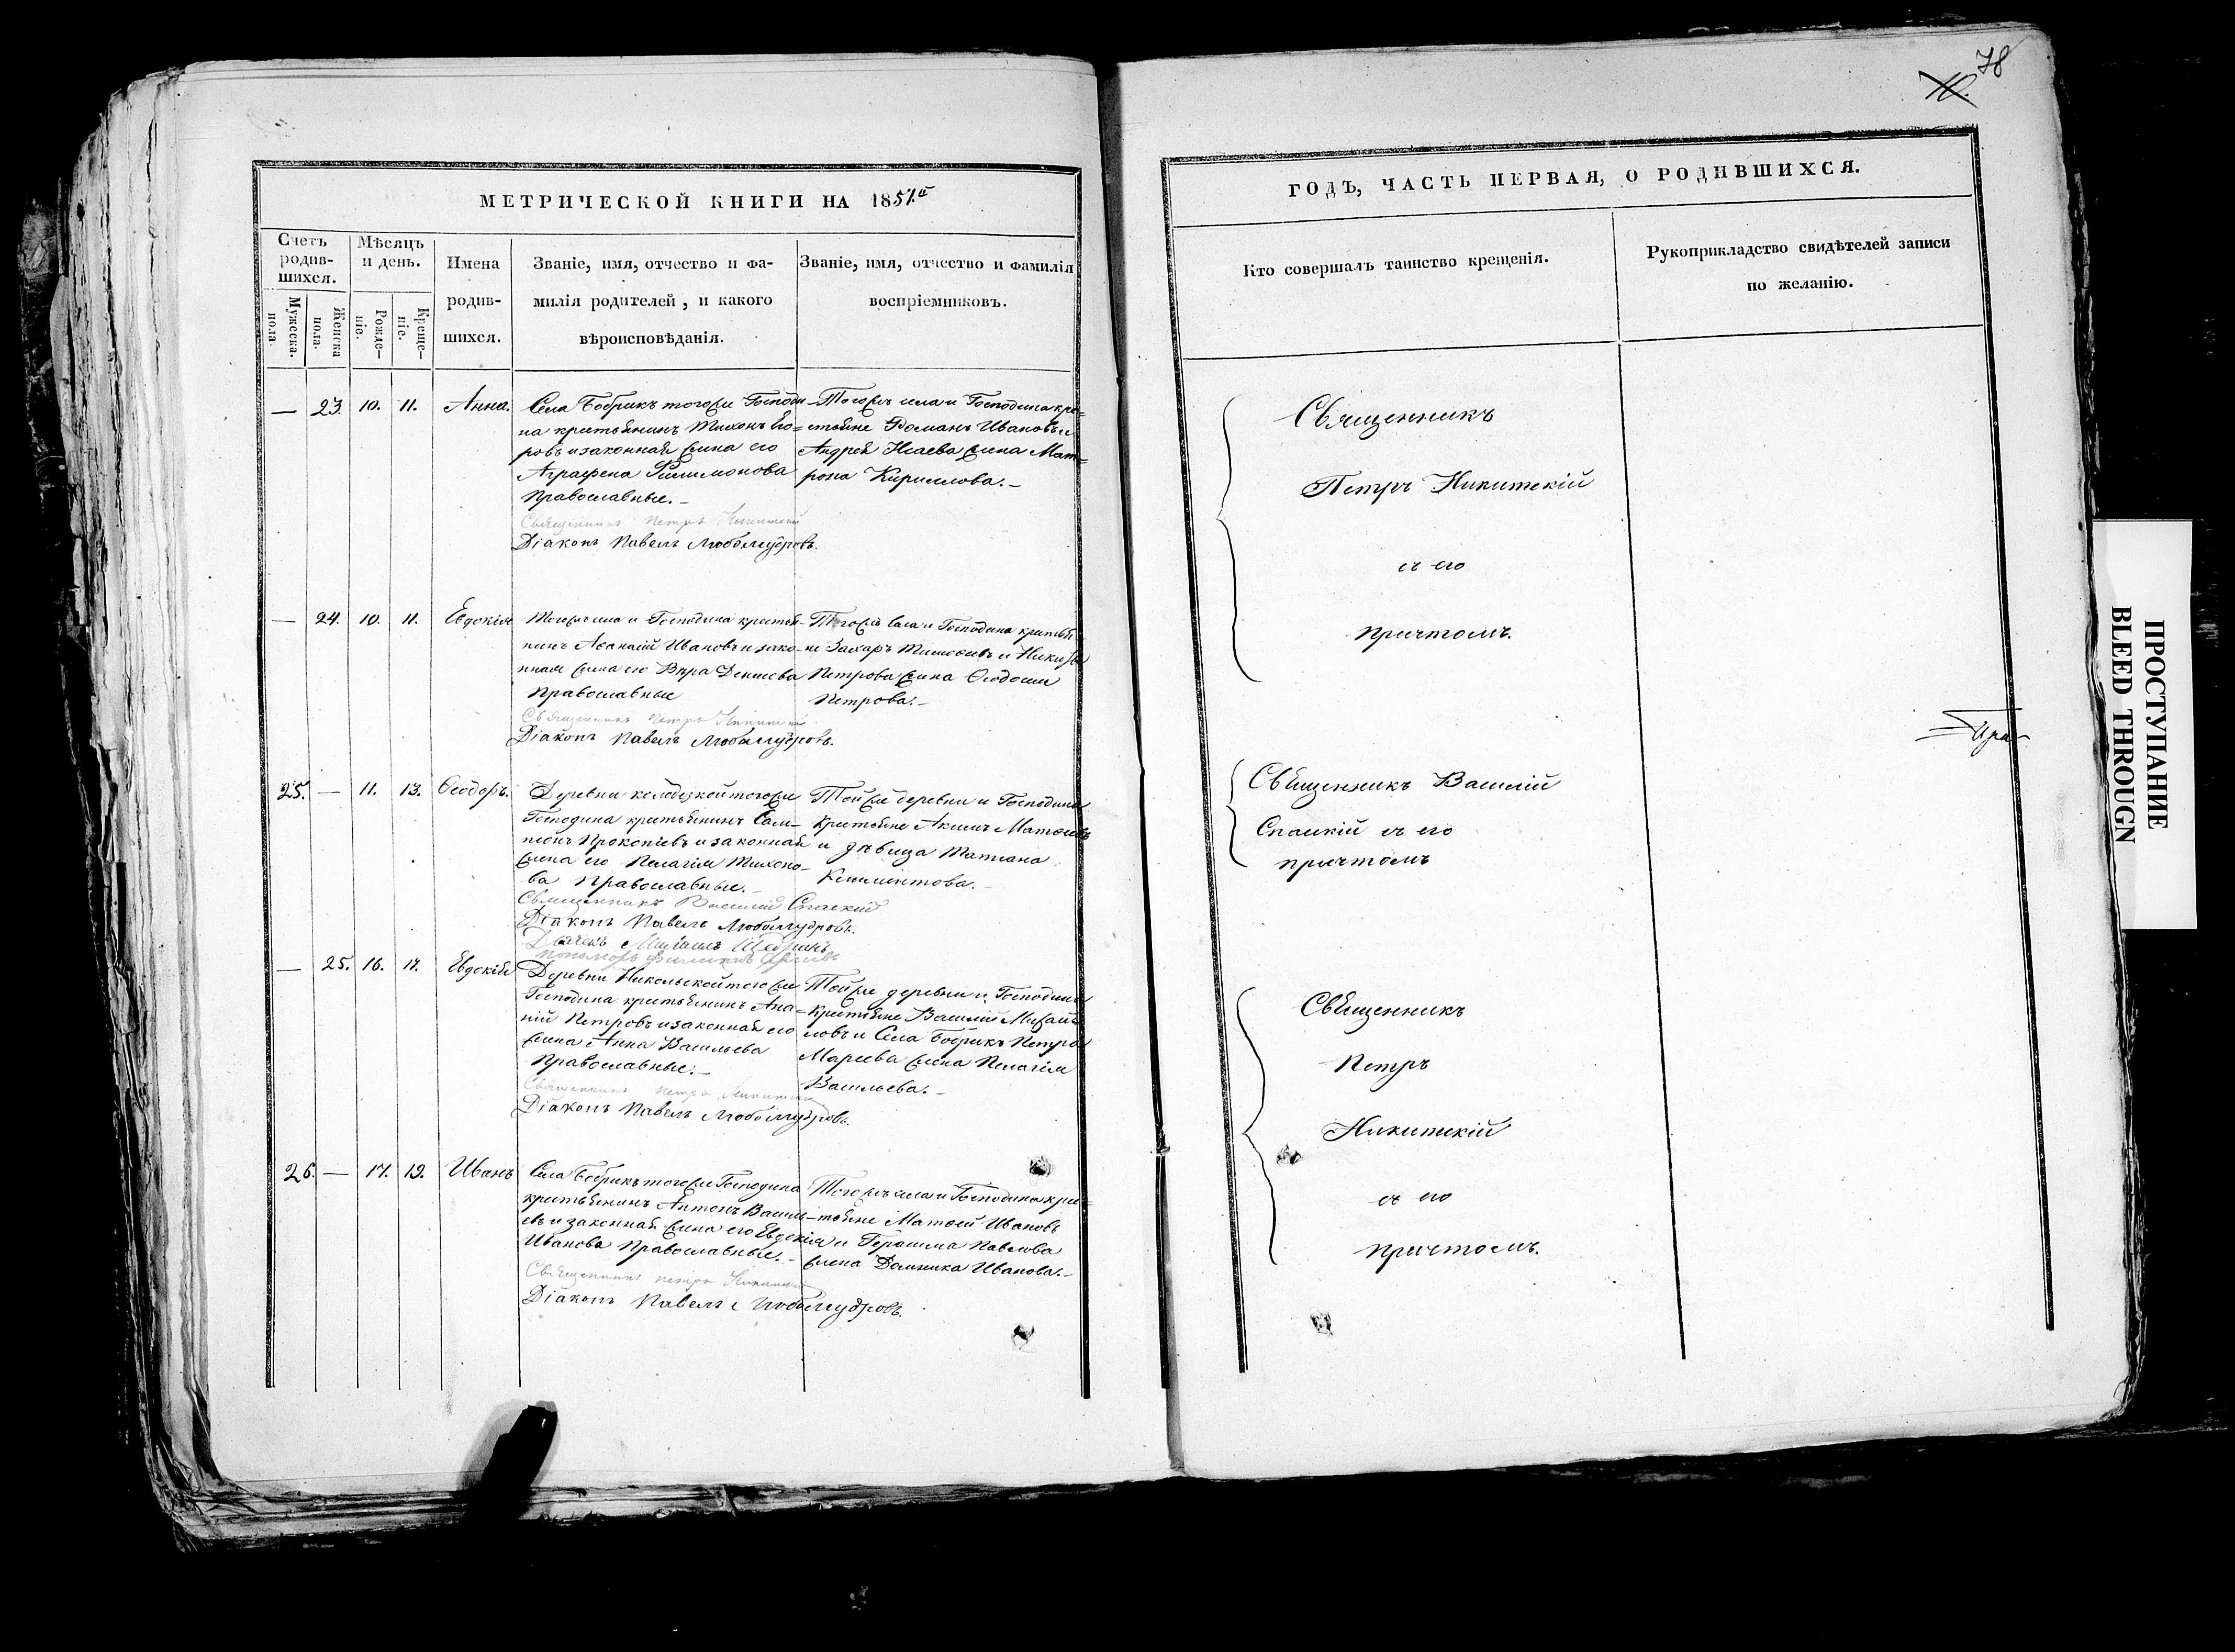 МЕТРИЧЕСКОЙ КНИГИ НА 1851.й
Счетъ родив-шихся.
Мужеска. пола.
Женска пола.
Мѣсяцъ и день.
Рожде-ніе.
Креще-ніе.
Имена
родив-
шихся.
Званіе, имя, отчество и фа-
милія родителей, и какого
вѣроисповѣданія.
Званіе, имя, отчество и фамилія
воспріемниковъ.
— 23. 10. 11. Анна.
Села Бобрикъ тогоже Господи-
на крестьянинъ Тихонъ Его=
ровъ и законная жена его
Аграфена Филимонова
Православные.-
Священникъ Петръ Никитскій
Діаконъ Павелъ Любомудровъ.
Тогожъ села и Господина кре=
стьяне Романъ Ивановъ и
Андрея Исаева жена Мат=
рона Кириллова.-
— 24. 10. 11. Евдокія
Тогожъ села и Господина крестья-
нинъ Аѳанасій Ивановъ и зако-
нная жена его Вѣра Денисова
Православные
Священникъ Петръ Никитскій
Діаконъ Павелъ Любомудровъ.
Тогоже села и Господина крестья-
не Захаръ и Никиты
Петрова жена Ѳеодосья
Петрова.-
25. — 11. 13. Ѳеодоръ.
Деревни колодезкой тогоже
Господина крестьянинъ Сам-
псонъ Прокопіевъ и законная
жена его Пелагія Тихоно-
ва Православные.-
Священникъ Василій Спаскій
Діаконъ Павелъ Любомудровъ.
Дьячекъ Михаилъ
Пономарь
Тойже деревни и Господина
Крестьяне Акимъ Матѳеевъ
и дѣвица Татіана
Климентова.-
— 25. 16. 17. Евдокія
Деревни Никольской тогоже
Господина крестьянинъ Ана=
ній Петровъ и законная его
жена Анна Васильева
Православные.-
Священникъ Петръ Никитскій
Діаконъ Павелъ Любомудровъ.
Тойже деревни и Господина
Крестьяне Василій Михай
ловъ и Села Бобрикъ Петра
Мареева жена Пелагія
Васильева.-
26. — 17. 19. Иванъ
Села Бобрикъ тогоже Господина
крестьянинъ Антонъ Василь-
евъ и законная жена его Евдокія
Иванова Православные.-
Священникъ Петръ Никитскій
Діаконъ Павелъ Любомудровъ.
Тогожъ села и Господина кре=
стьяне Матѳей Ивановъ
и Герасима Павлова
жена Домника Иванова.-
78
10.
ГОДЪ, ЧАСТЬ ПЕРВАЯ, О РОДИВШИХСЯ.
Кто совершалъ таинство крещенія.
Рукоприкладство свидѣтелей записи
по желанію.
Священникъ
Петръ Никитскій
съ его
причтомъ.
Священникъ Василій
Спаскій съ его
причтомъ
Священникъ
Петръ
Никитскій
съ его
причтомъ.
ПРОСТУПАНИЕ
BLEED THROUGN